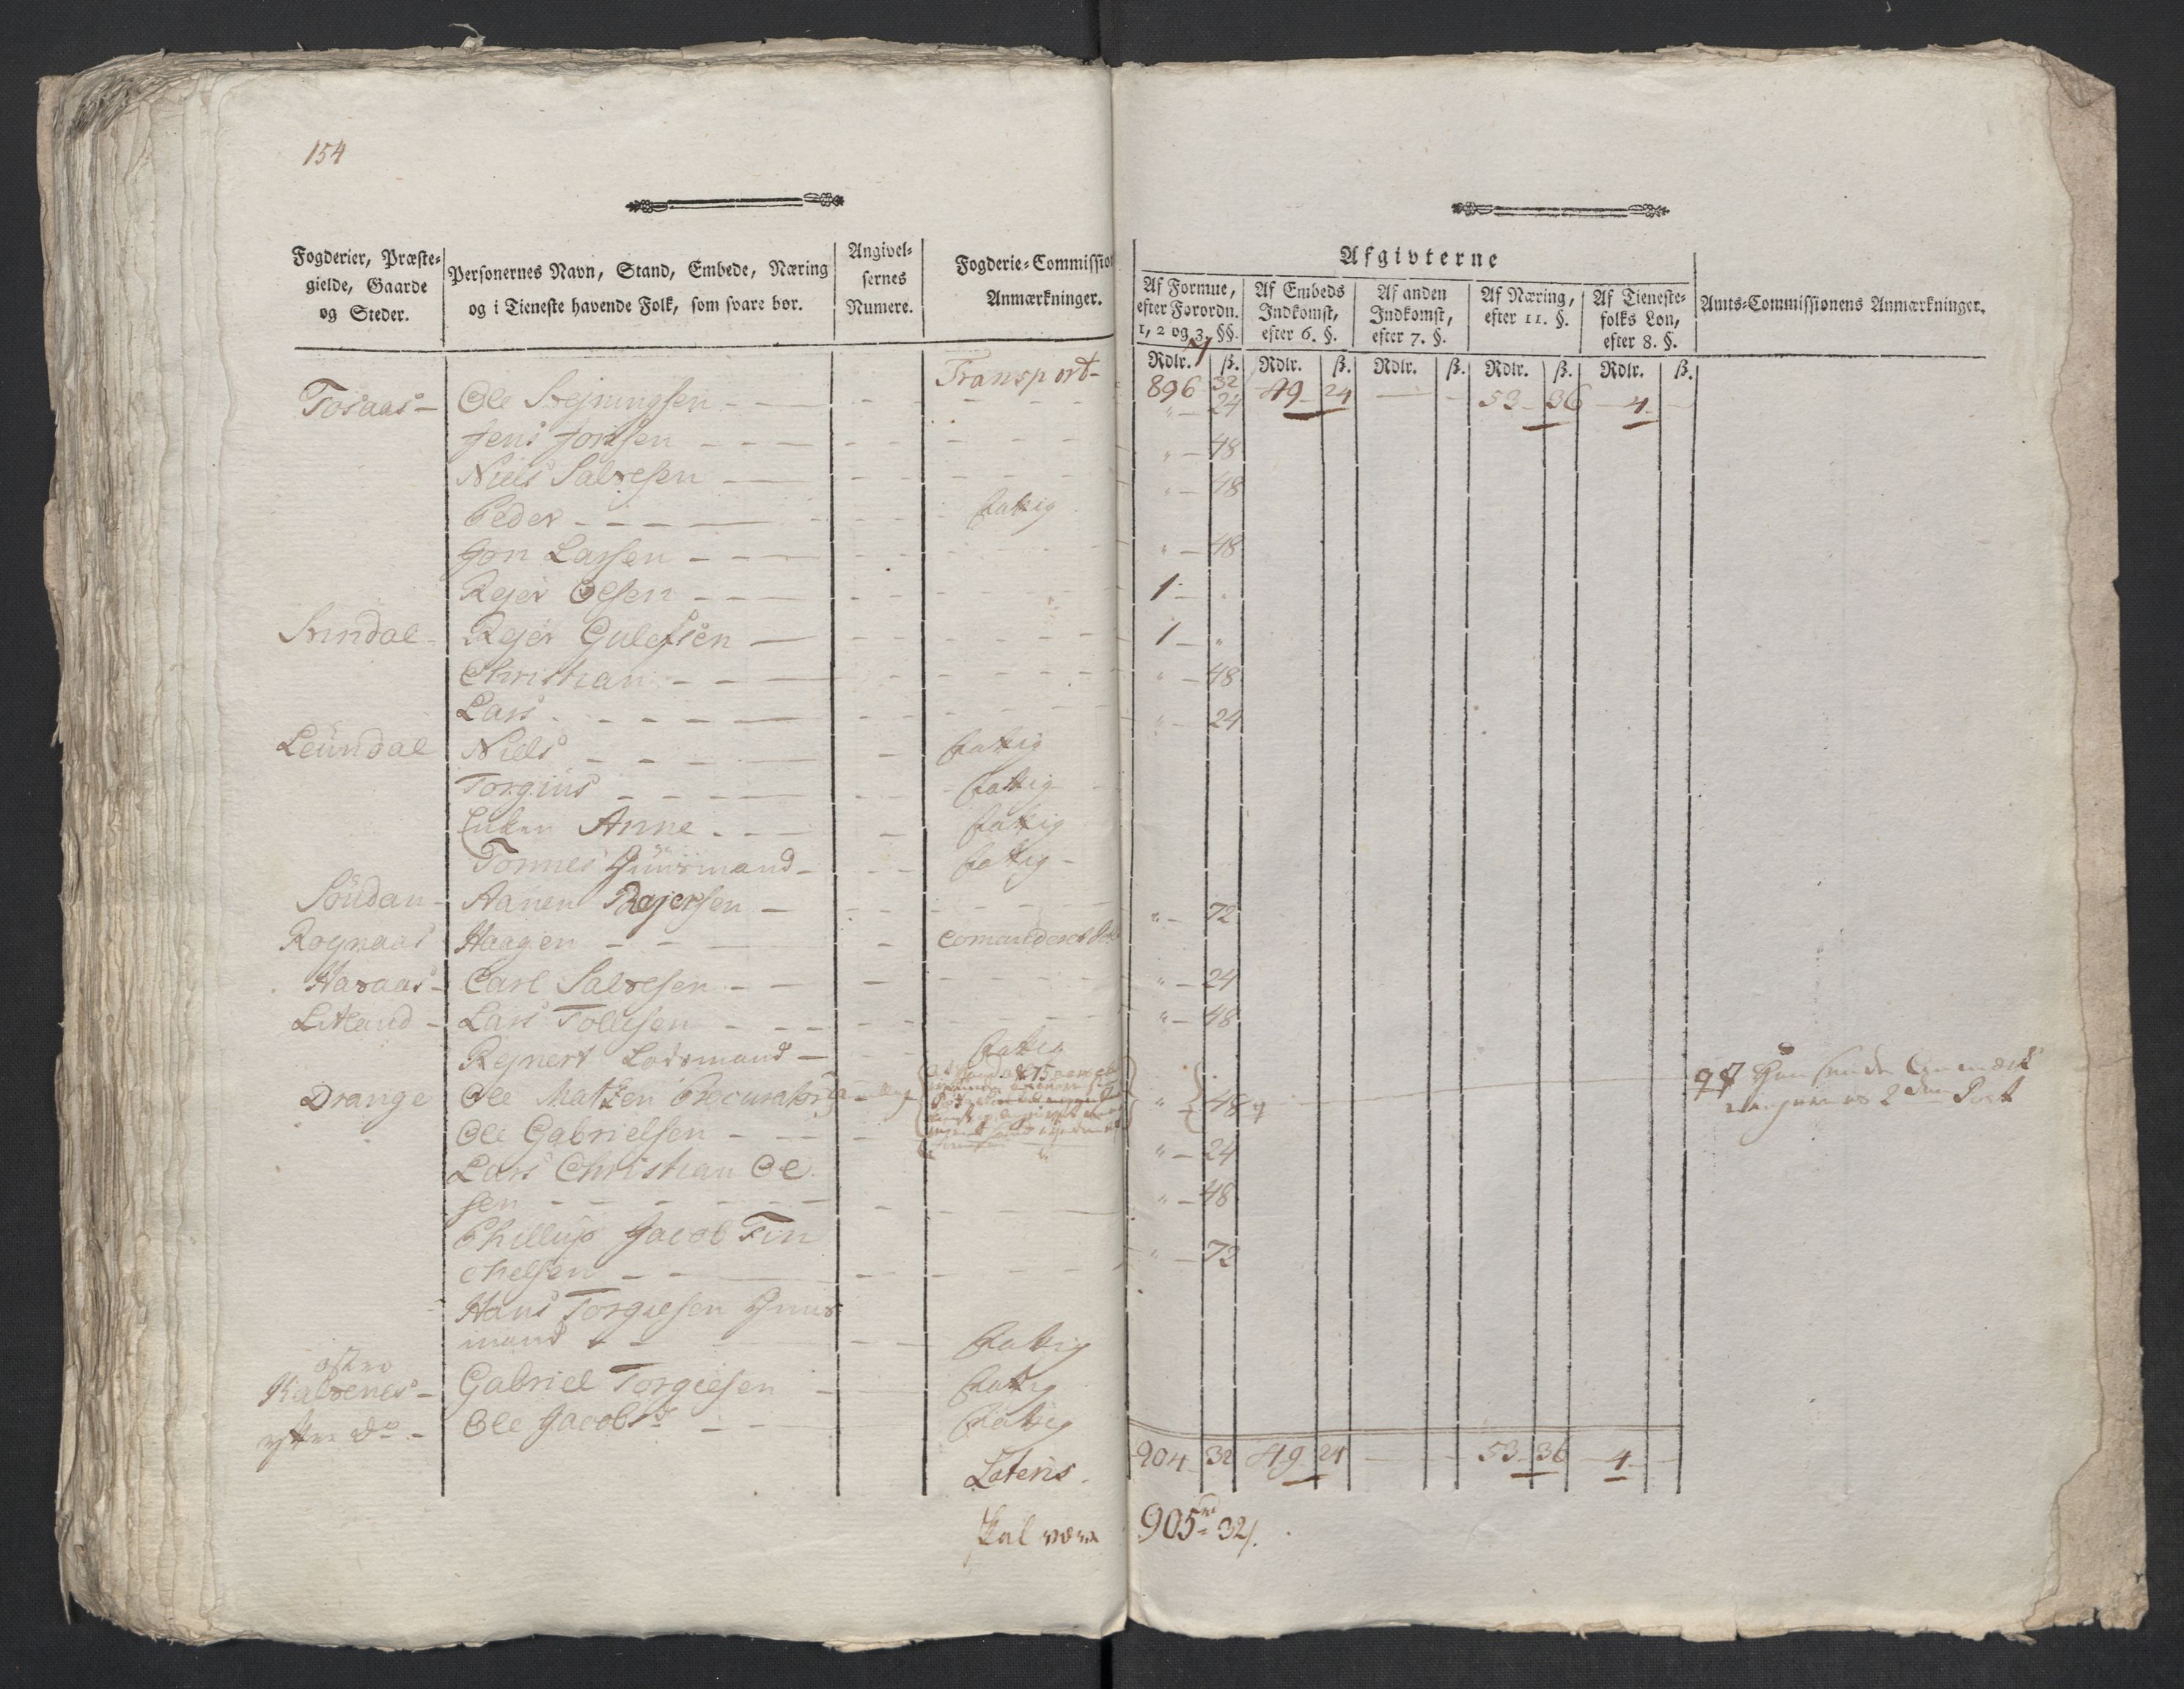 154
Fogderier, Præste-
gielde, Gaarde
og Steder.
Personernes Navn, Stand, Embede, Næring
og i Tieneste havende Folk, som svare bør.
Angivel-
sernes
Numere.
Fogderie-Commission
Anmærkninger.
Afgivterne
Af Formue,
efter Forordn.
1, 2 og 3. §§.
Af Embeds
Indkomst,
efter 6. §.
Af anden
Indkomst,
efter 7. §.
Af Næring,
efter 11. §.
Af Tieneste-
folks Løn,
efter 8. §.
Amts-Commissionens Anmærkninger.
Rdlr. ß. Rdlr. ß. Rdlr. ß. Rdlr. ß. Rdlr. ß.
Transport - 896 32 49 24 - - 53 36 - 4 -
Tosaas - Ole Stejningsen - - " - 24
Jens Jonsen - - - " - 48
Niels Salvesen - " - 48
Peder - - - - fattig
Jon Larsen - - - " - 48
Rejer Olsen - - - 1 -
Stendal - Rejer Gulefsen - 1 - "
Christian - - - " - 48
Lars - - - - " - 24
Leündal Niels - - - - fattig
Torgius - - - fattig
Enken Anne - - - fattig
Tonnes Huusmand - fattig -
Söudan - Aanen Rejersen - " - 72
Rognaas Haagen - - - comanderet
Haraas - Carl Salvesen - - " - 24
Litland - Lars Tollefsen - - - " - 48
Rejnert Lodsmand - fattig
Drange Ole Matzen Procurator " 48
Ole Gabrielsen - - - " - 24
Lars Christian Ol
sen - - - - " - 48
Phillip Jacob Fin
chelsen - - - " - 72
Hans Torgiesen Huus
mand - - fattig
østre
Kalvenes - Gabriel Torgiesen - fattig
yttre do - Ole Jacobsd - - fattig
Lateris. 904 32 49 24 - - 53 36 - 4 -
skal være 905 rd 32 ß.